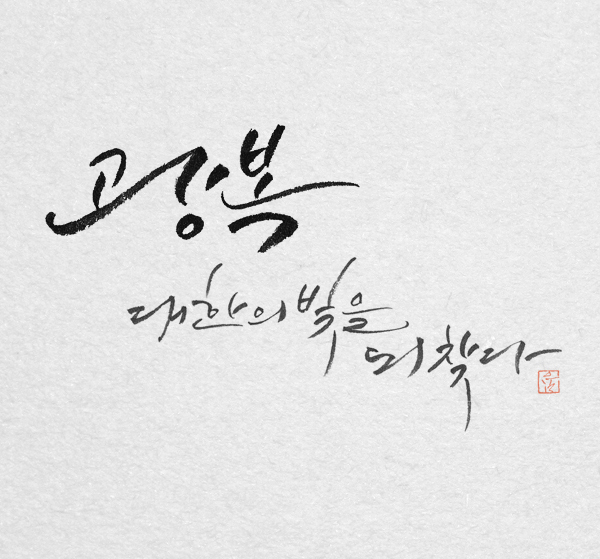 광복
대한의 빛을
되찾다